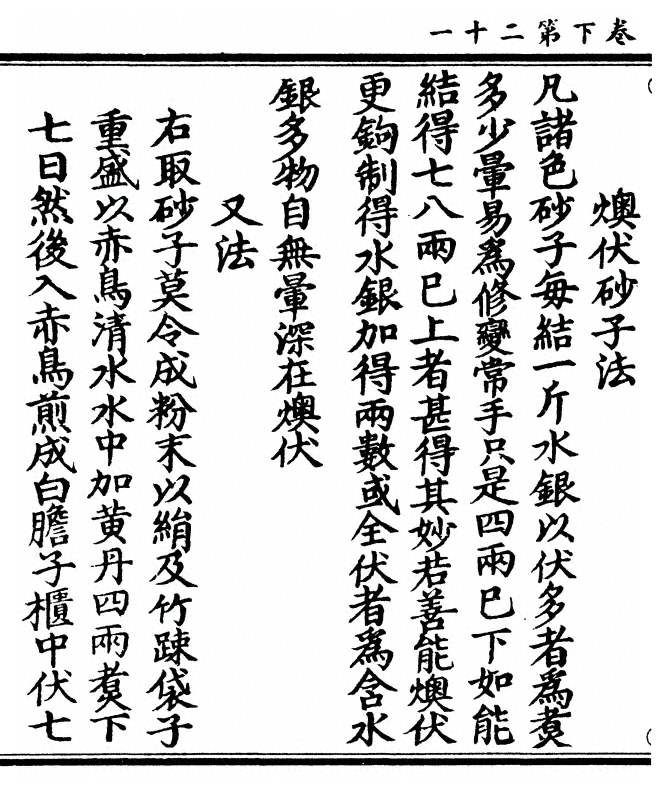 卷下第二十一
燠伏砂子法
凡諸色砂子每結一斤水銀以伏多者爲煑
多少暈易爲修變常手只是四兩巳下如能
結得七八兩巳上者甚得其妙若善能燠伏
更鉤制得水銀加得兩數或全伏者爲含水
銀多物自無暈深在燠伏
又法
右取砂子莫令成粉末以絹及竹踈袋子
重盛以赤鳥清水水中加黄丹四兩煑下
七日然後入赤鳥煎成白膽子櫃中伏七